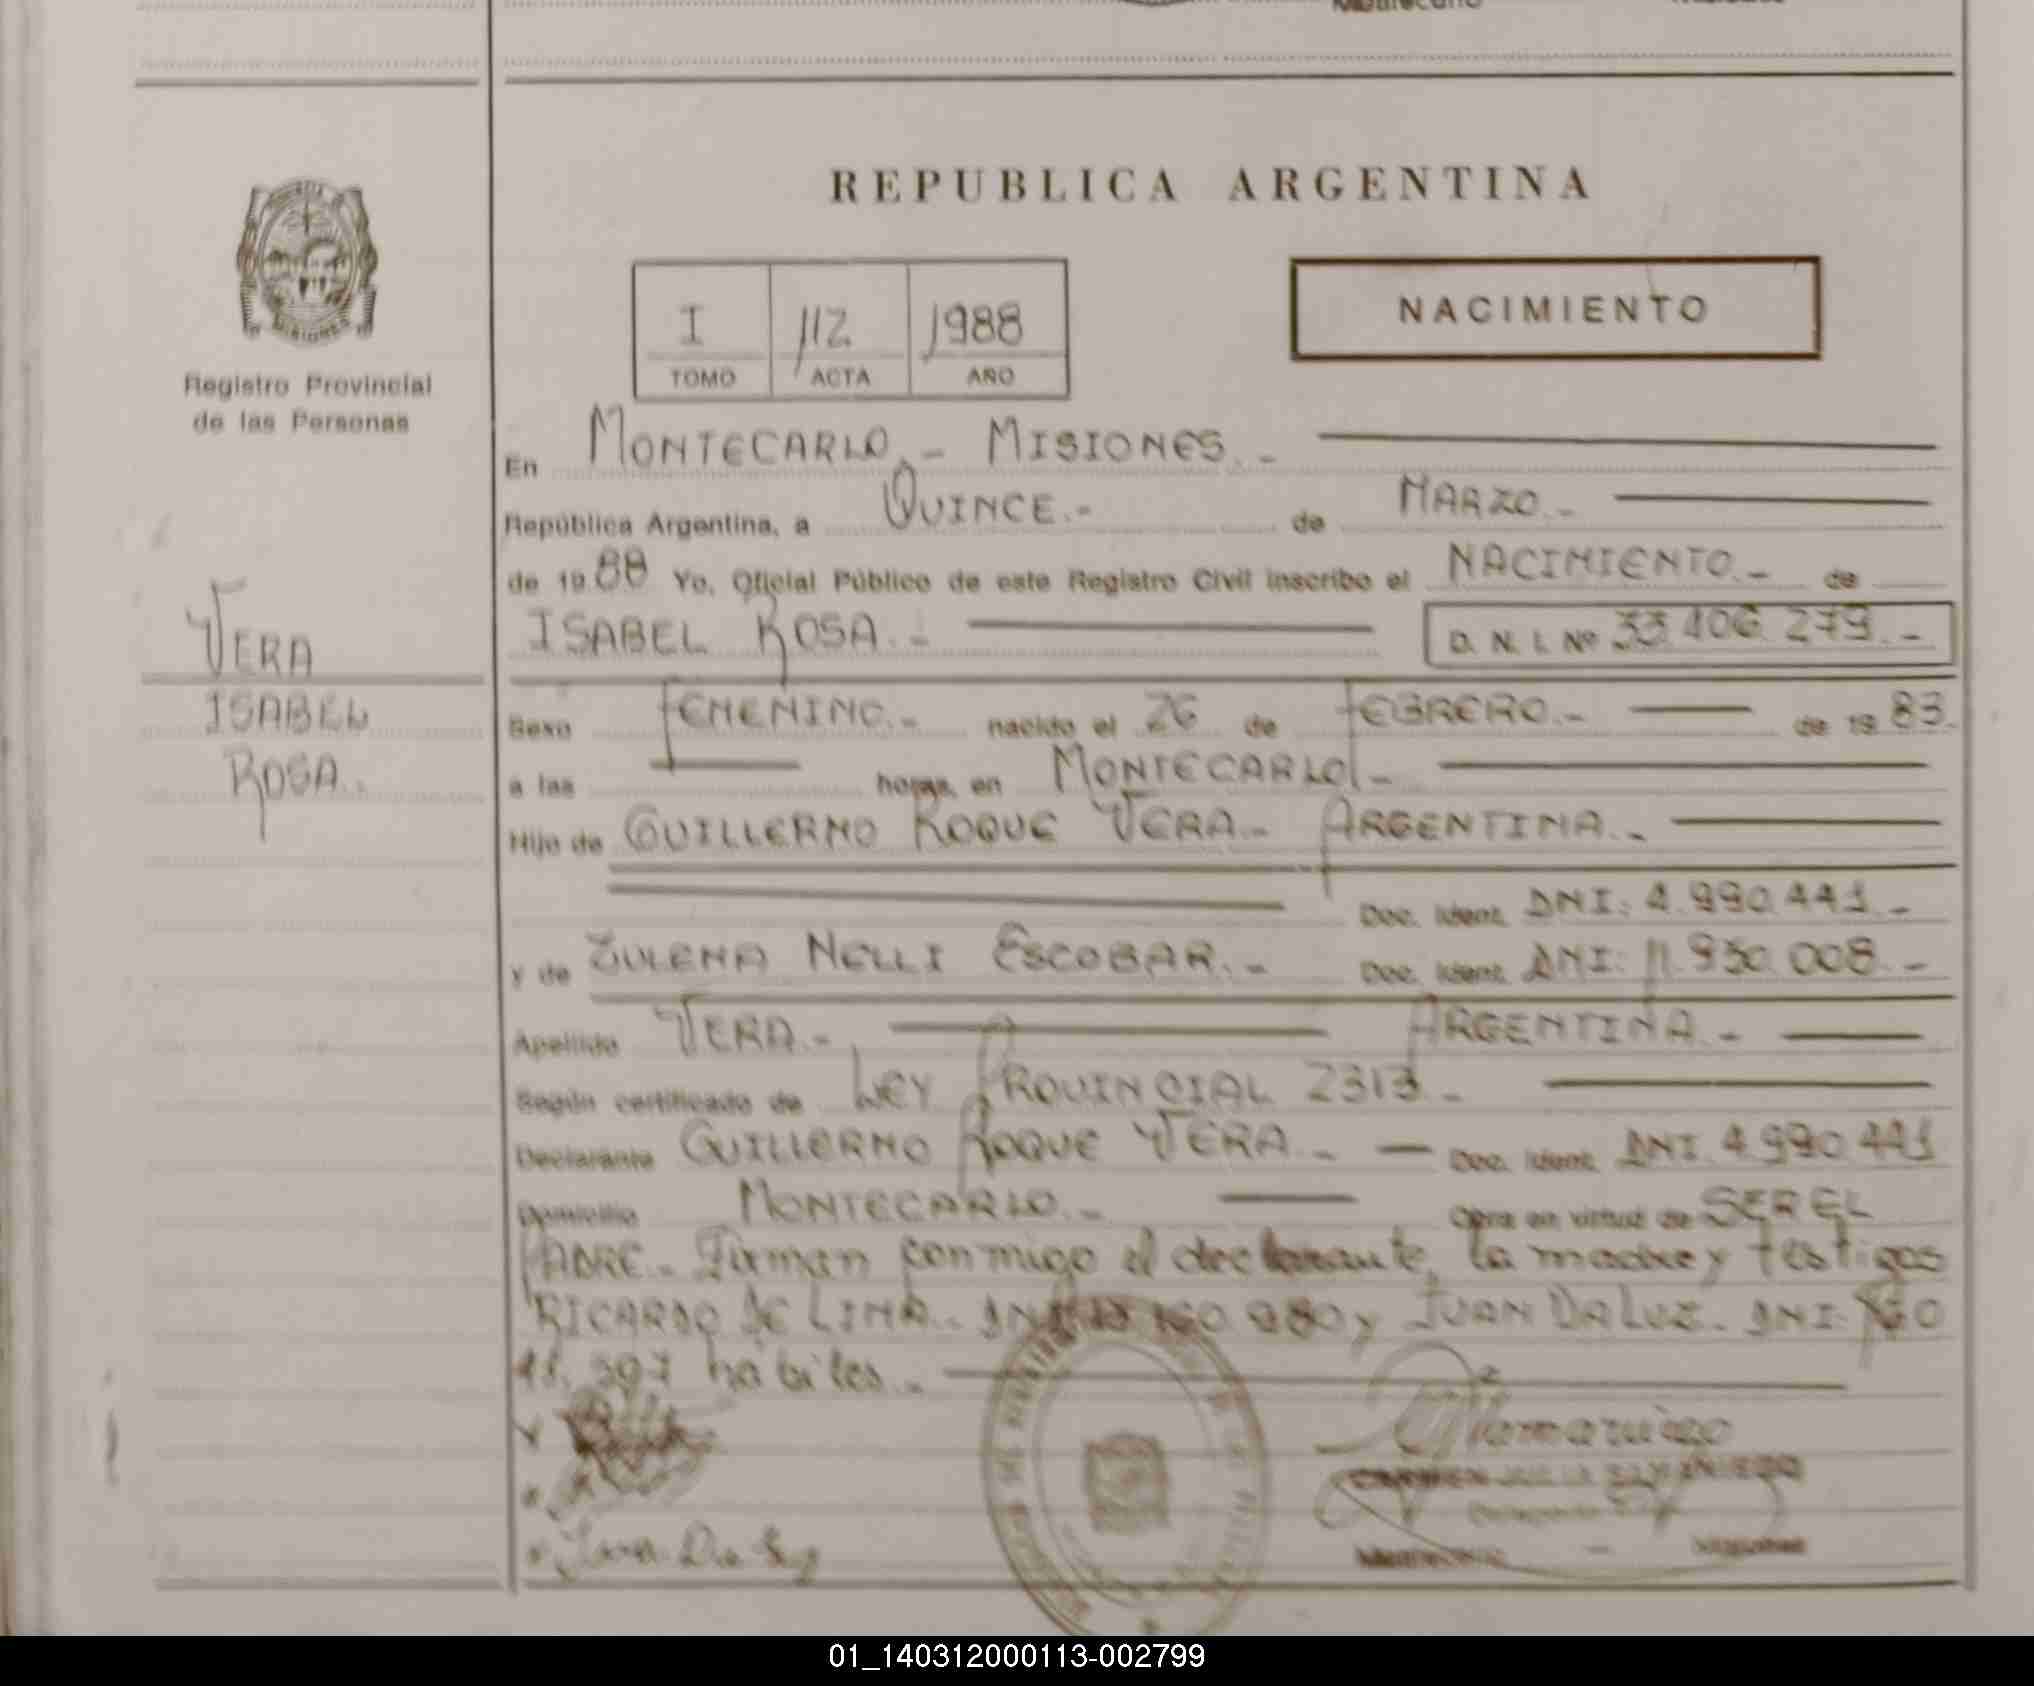 REPUBLICA ARGENTINA
I 112 1988
TOMO ACTA AÑO
NACIMIENTO
MISIONES
Registro Provincial
de las Personas
VERA
ISABEL
ROSA.
En MONTECARLO.- MISIONES.-
República Argentina, a QUINCE.- de MARZO.-
de 1988 Yo, Oficial Público de este Registro Civil inscribo el NACIMIENTO.- de
ISABEL ROSA.- D. N. I. Nº 33.406.279.-
Sexo FEMENINO.- nacido el 26 de FEBRERO.- de 1983.
a las horas, en MONTECARLO.-
Hijo de GUILLERMO ROQUE VERA.- ARGENTINA.-
Doc. Ident. DNI: 4.990.441.-
y de ZULEMA NELLI ESCOBAR.- Doc. Ident. DNI: 11.950.008.-
Apellido VERA.- ARGENTINA.-
Según certificado de LEY PROVINCIAL 2313.-
Declarante GUILLERMO ROQUE VERA.- Doc. Ident. DNI. 4.990.441
Domicilio MONTECARLO.- Obra en virtud de SER EL
PADRE.- Firman conmigo el declarante, la madre y testigos
RICARDO DE LIMA.- DNI y JUAN DA LUZ.- DNI
hábiles.-
Juan Da Luz
CARMEN JULIA SAMANIEGO
Montecarlo - Misiones
01_140312000113-002799